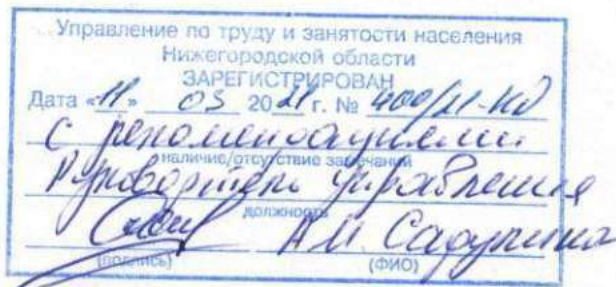 Управление по труду и занятости населения
Нижегородской области
ЗАРЕГИСТРИРОВАН
Дата «11» 05 2021 г. № 400/21-КД
с рекомендациями
наличие/отсутствие замечаний
Руководитель управления
должность
А.М.
(подпись) (ФИО)